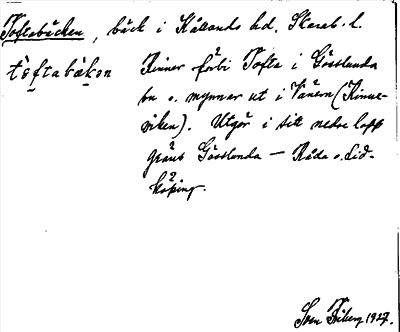 Toftabäcken, bäck i Kållands hd. Skarab. l.
töftabäkən Rinner förbi Tofta i Gösslunda
sn o. mynnar ut i Vänern (Kinne-
viken). Utgör i sitt nedre lopp
gräns Gösslunda — Råda o. Lid-
köping.
Sven Friberg 1927.